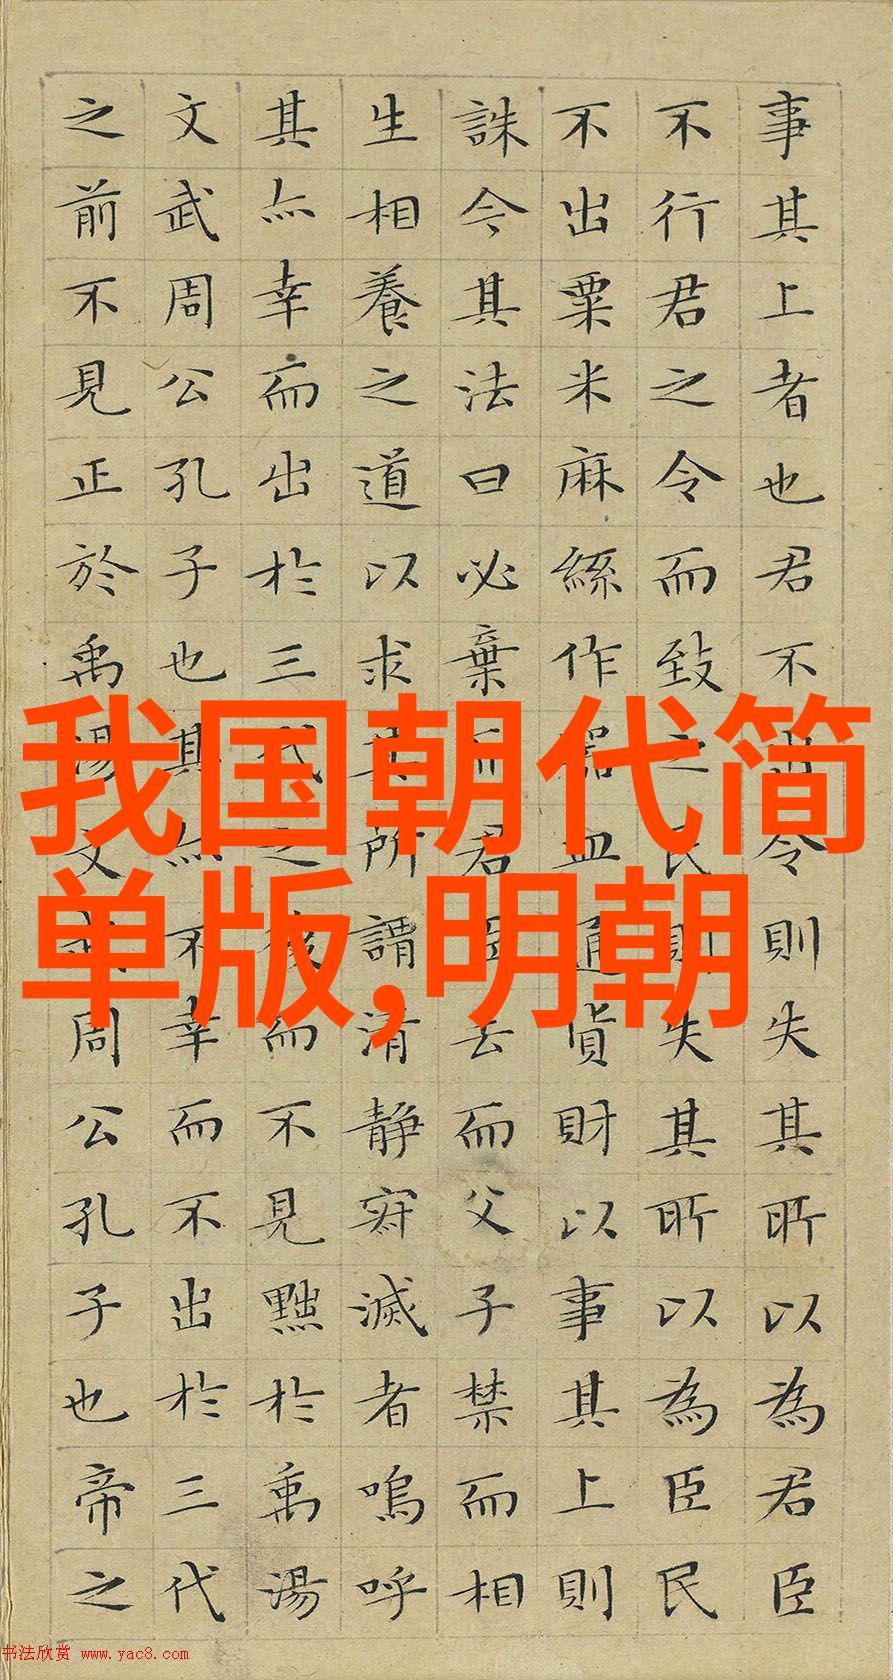 事其上者也君不出令則失其所以為君臣
不行君之令而致之民則失其所以為臣民
不出粟米麻絲作器皿通貨財以事其上則
誅今其法曰必棄而君臣去而父子禁而相
生相養之道以求其所謂清静寂滅者嗚呼
其亦幸而出於三代之後而不見黜於禹湯
文武周公孔子也其亦不幸而不出於三代
之前不見正於禹湯文武周公孔子也帝之
我国朝代简
单版,明朝
书法欣赏 www.yac8.com